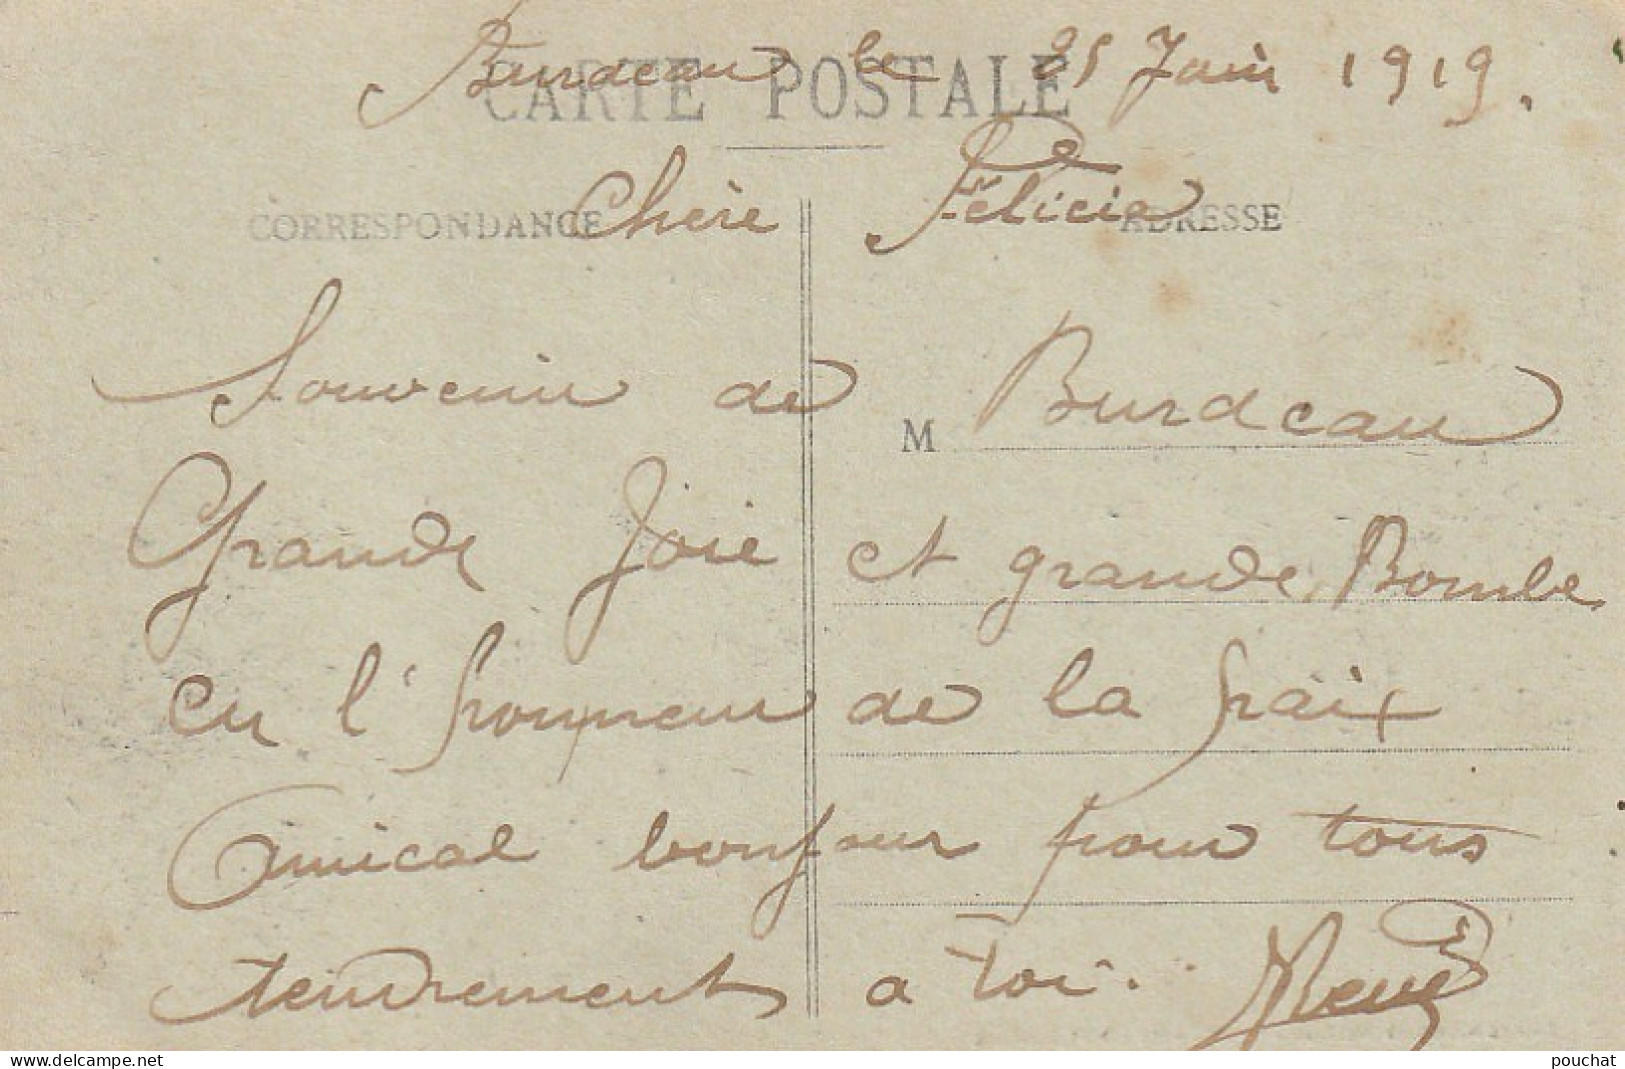 Burdeau le 25 Juin 1919.
CARTE POSTALE
Chère Félicia
CORRESPONDANCE ADRESSE
Souvenir de Burdeau
M
Grande Joie et grande Bombe
en l'honneur de la paix
Amical bonjour pour tous
tendrement a toi. René
pouchat